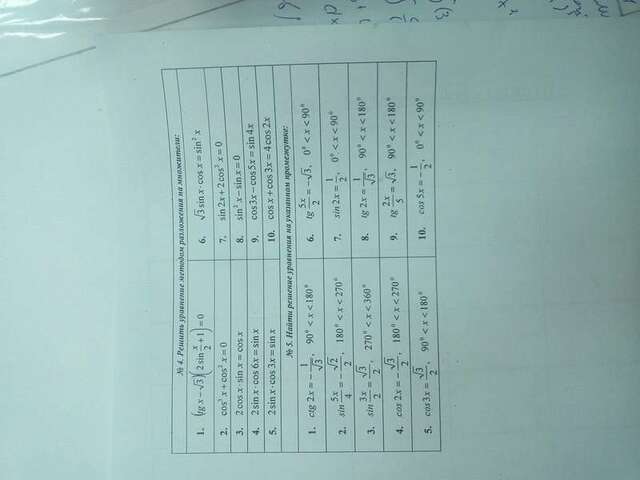 № 4. Решить уравнение методом разложения на множители:
1. (tg x − √3)(2 sin x/2 + 1) = 0
6. √3 sin x · cos x = sin² x
2. cos³ x + cos² x = 0
7. sin 2x + 2 cos² x = 0
3. 2 cos x · sin x = cos x
8. sin² x − sin x = 0
4. 2 sin x · cos 6x = sin x
9. cos 3x − cos 5x = sin 4x
5. 2 sin x · cos 3x = sin x
10. cos x + cos 3x = 4 cos 2x
№ 5. Найти решение уравнения на указанном промежутке:
1. ctg 2x = −1/√3, 90° < x < 180°
6. tg 5x/2 = −√3, 0° < x < 90°
2. sin 5x/4 = −√2/2, 180° < x < 270°
7. sin 2x = 1/2, 0° < x < 90°
3. sin 3x/2 = √3/2, 270° < x < 360°
8. tg 2x = −1/√3, 90° < x < 180°
4. cos 2x = −√3/2, 180° < x < 270°
9. tg 2x/5 = √3, 90° < x < 180°
5. cos 3x = √3/2, 90° < x < 180°
10. cos 5x = −1/2, 0° < x < 90°